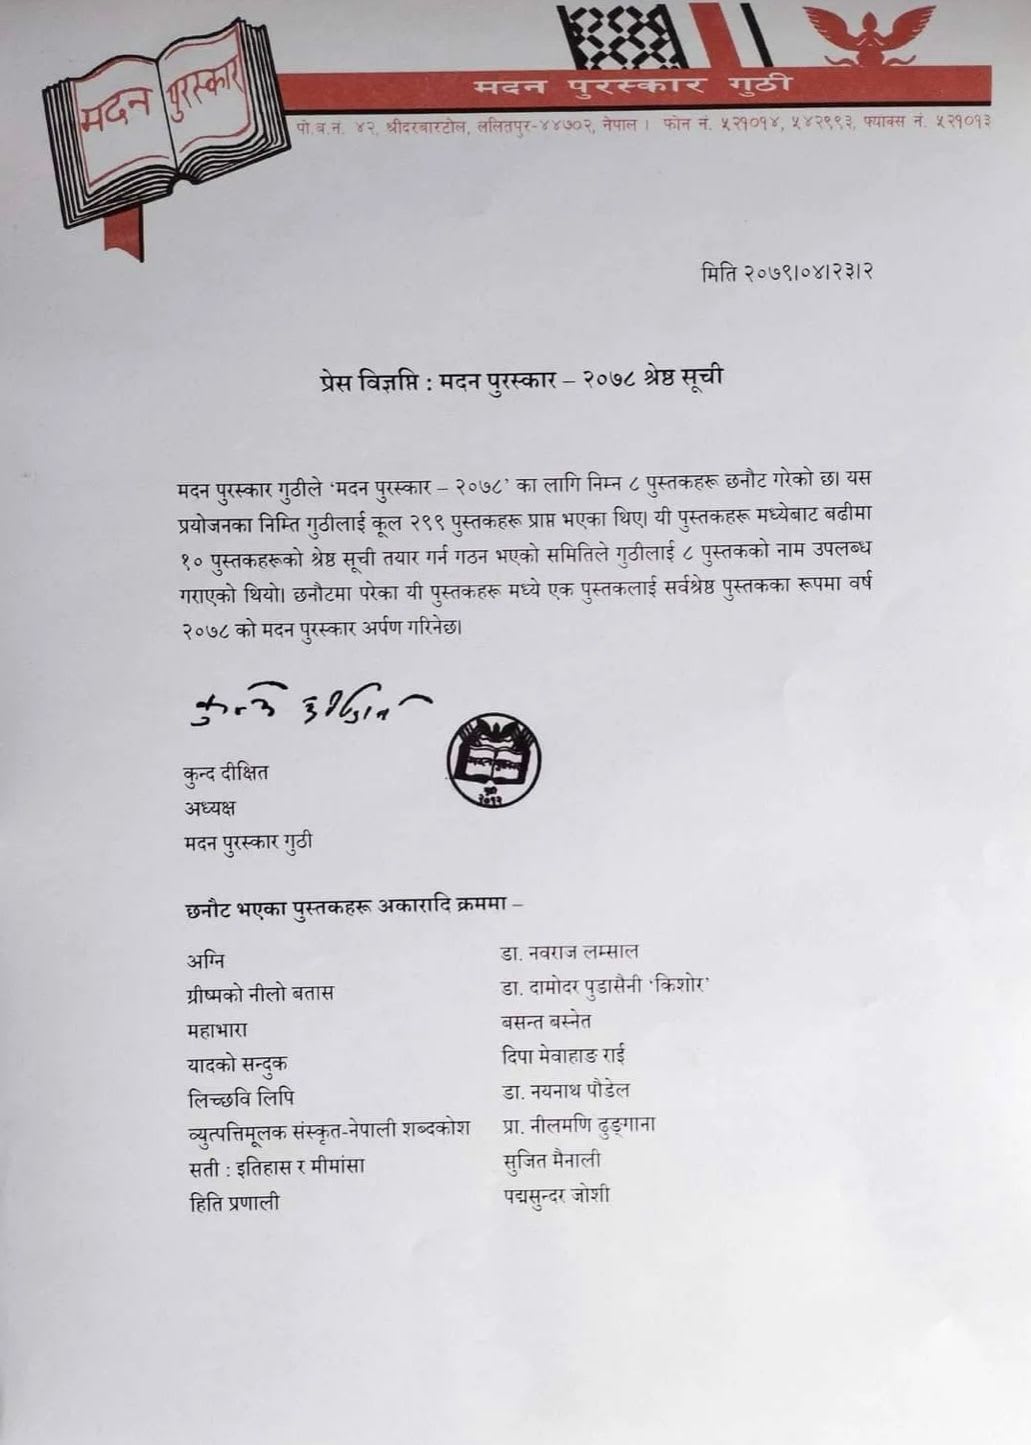 मदन पुरस्कार
मदन पुरस्कार गुठी
पो.ब.नं. ४२, श्रीदरबारटोल, ललितपुर-४४७०२, नेपाल । फोन नं. ५२१०१४, ५४२९९३, फ्याक्स नं. ५२१०१३
मिति २०७९।०४।२३।२
प्रेस विज्ञप्ति : मदन पुरस्कार – २०७८ श्रेष्ठ सूची
मदन पुरस्कार गुठीले ‘मदन पुरस्कार – २०७८’ का लागि निम्न ८ पुस्तकहरू छनौट गरेको छ। यस
प्रयोजनका निम्ति गुठीलाई कूल २९९ पुस्तकहरू प्राप्त भएका थिए। यी पुस्तकहरू मध्येबाट बढीमा
१० पुस्तकहरूको श्रेष्ठ सूची तयार गर्न गठन भएको समितिले गुठीलाई ८ पुस्तकको नाम उपलब्ध
गराएको थियो। छनौटमा परेका यी पुस्तकहरू मध्ये एक पुस्तकलाई सर्वश्रेष्ठ पुस्तकका रूपमा वर्ष
२०७८ को मदन पुरस्कार अर्पण गरिनेछ।
कुन्द दीक्षित
अध्यक्ष
मदन पुरस्कार गुठी
छनौट भएका पुस्तकहरू अकारादि क्रममा –
अग्नि डा. नवराज लम्साल
ग्रीष्मको नीलो बतास डा. दामोदर पुडासैनी ‘किशोर’
महाभारा बसन्त बस्नेत
यादको सन्दुक दिपा मेवाहाङ राई
लिच्छवि लिपि डा. नयनाथ पौडेल
व्युत्पत्तिमूलक संस्कृत-नेपाली शब्दकोश प्रा. नीलमणि ढुङ्गाना
सती : इतिहास र मीमांसा सुजित मैनाली
हिति प्रणाली पद्मसुन्दर जोशी